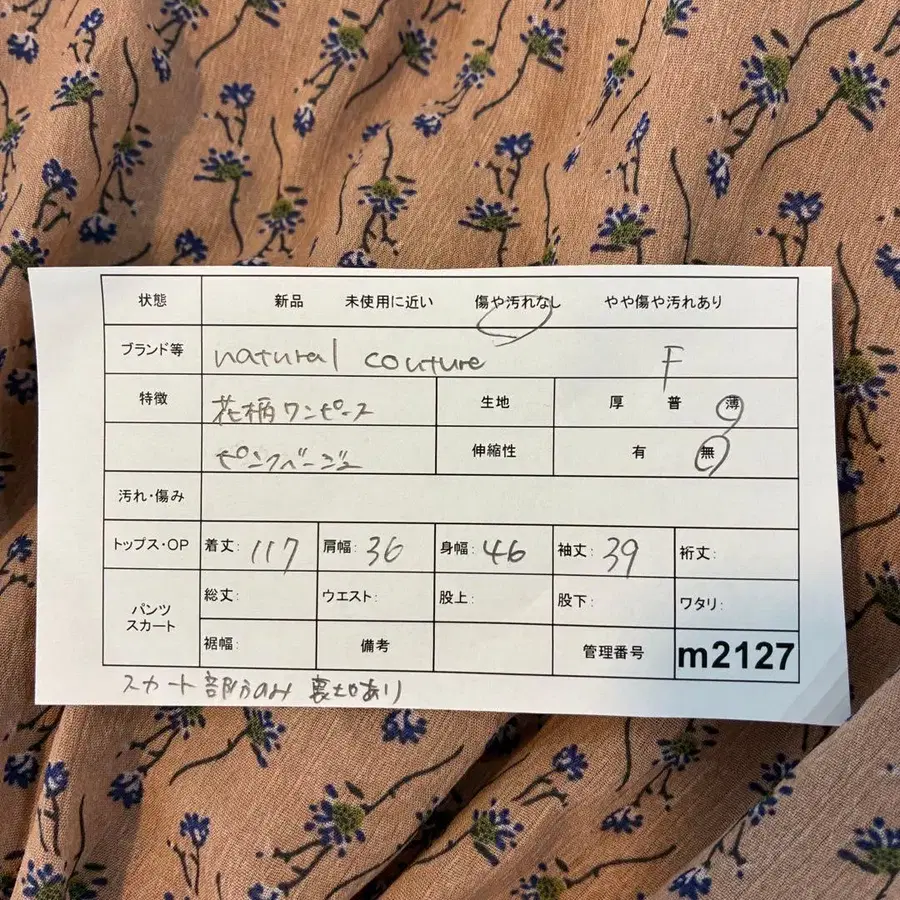 状態 新品 未使用に近い 傷や汚れなし やや傷や汚れあり
ブランド等 natural couture F
特徴 花柄ワンピース 生地 厚 普 薄
ピンクベージュ 伸縮性 有 無
汚れ・傷み
トップス・OP 着丈: 117 肩幅: 36 身幅: 46 袖丈: 39 裄丈:
パンツ スカート 総丈: ウエスト: 股上: 股下: ワタリ:
裾幅: 備考 管理番号 m2127
スカート部分のみ 裏地あり